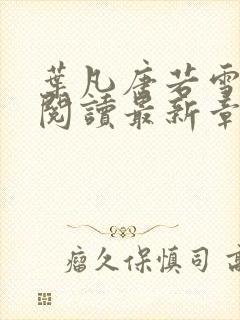 葉凡唐若雪
閱讀最新章
瘤久保慎司 高